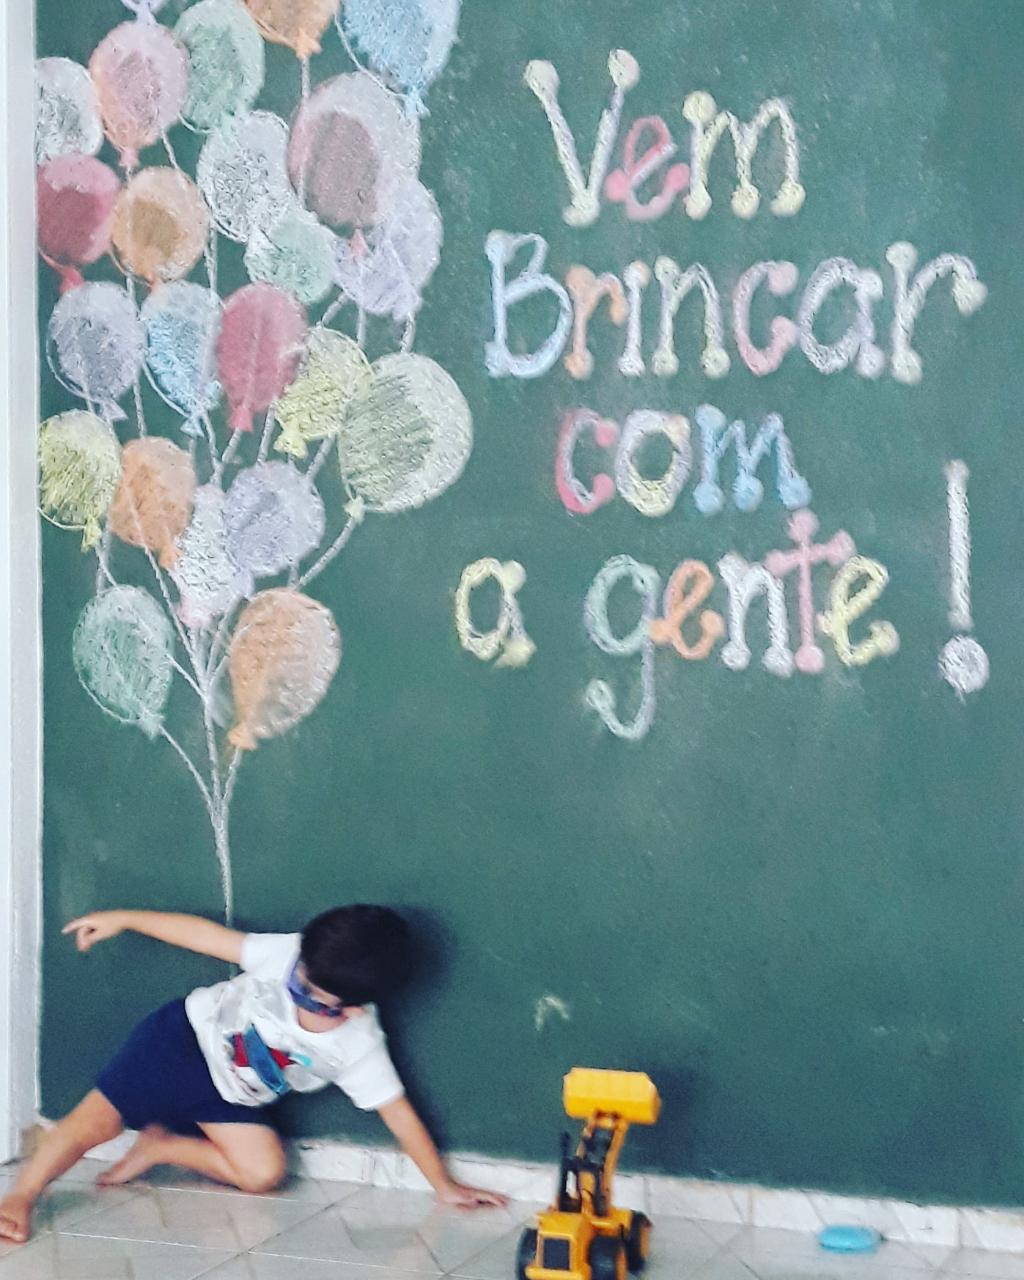 Vem
Brincar
com
a gente!